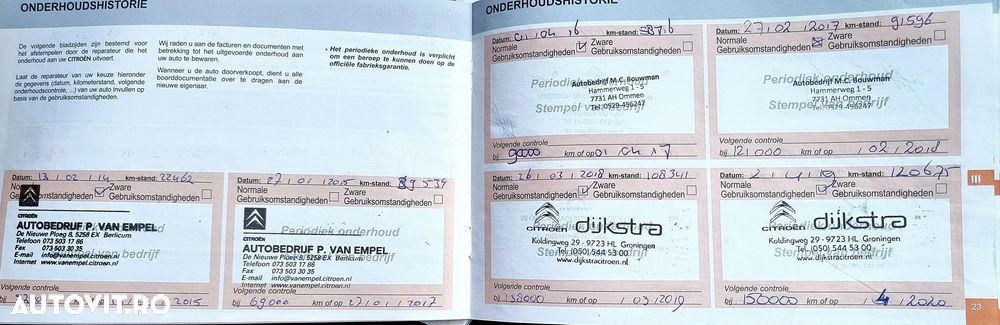 ONDERHOUDSHISTORIE
De volgende bladzijden zijn bestemd voor
het afstempelen door de reparateur die het
onderhoud aan uw CITROËN uitvoert.
Laat de reparateur van uw keuze hieronder
de gegevens (datum, kilometerstand, volgende
onderhoudscontrole, ...) van uw auto invullen op
basis van de gebruiksomstandigheden.
Wij raden u aan de facturen en documenten met
betrekking tot het uitgevoerde onderhoud aan
uw auto te bewaren.
Wanneer u de auto doorverkoopt, dient u alle
boorddocumentatie over te dragen aan de
nieuwe eigenaar.
• Het periodieke onderhoud is verplicht
om een beroep te kunnen doen op de
officiële fabrieksgarantie.
Datum: 13/02/14 km-stand: 22462
Normale Zware
Gebruiksomstandigheden
CITROËN
AUTOBEDRIJF P. VAN EMPEL
De Nieuwe Ploeg 8, 5258 EX Berlicum
Telefoon 073 503 17 86
Fax 073 503 30 35
E-mail info@vanempel.citroen.nl
Internet www.vanempel.citroen.nl
Volgende controle
bij km of op 2015
Datum: 27/01/2015 km-stand: 39539
Normale Zware
Gebruiksomstandigheden
Periodiek onderhoud
CITROËN
AUTOBEDRIJF P. VAN EMPEL
De Nieuwe Ploeg 8, 5258 EX Berlicum
Telefoon 073 503 17 86
Fax 073 503 30 35
E-mail info@vanempel.citroen.nl
Internet www.vanempel.citroen.nl
Volgende controle
bij 69000 km of op 27/01/2017
ONDERHOUDSHISTORIE
Datum: 01/04/16 km-stand:
Normale Zware
Gebruiksomstandigheden
Periodiek onderhoud
Autobedrijf M.C. Bouwman
Hammerweg 1 - 5
7731 AH Ommen
Stempel van bedrijf
Tel: 0529-456247
Volgende controle
bij 90000 km of op 01 04 17
Datum: 27/02/2017 km-stand: 91596
Normale Zware
Gebruiksomstandigheden
Periodiek onderhoud
Autobedrijf M.C. Bouwman
Hammerweg 1 - 5
7731 AH Ommen
Stempel van bedrijf
Tel: 0529-456247
Volgende controle
bij 121000 km of op /02/2018
Datum: 26/03/2018 km-stand: 108341
Normale Zware
Gebruiksomstandigheden
CITROËN dijkstra
Koldingweg 29 - 9723 HL Groningen
Tel. (050) 544 53 00
www.dijkstracitroen.nl
Volgende controle
bij 138000 km of op /03/2019
Datum: 2/4/19 km-stand: 120675
Normale Zware
Gebruiksomstandigheden
CITROËN dijkstra
Koldingweg 29 - 9723 HL Groningen
Tel. (050) 544 53 00
www.dijkstracitroen.nl
Volgende controle
bij 150000 km of op /4/2020
III
23
AUTOVIT.RO